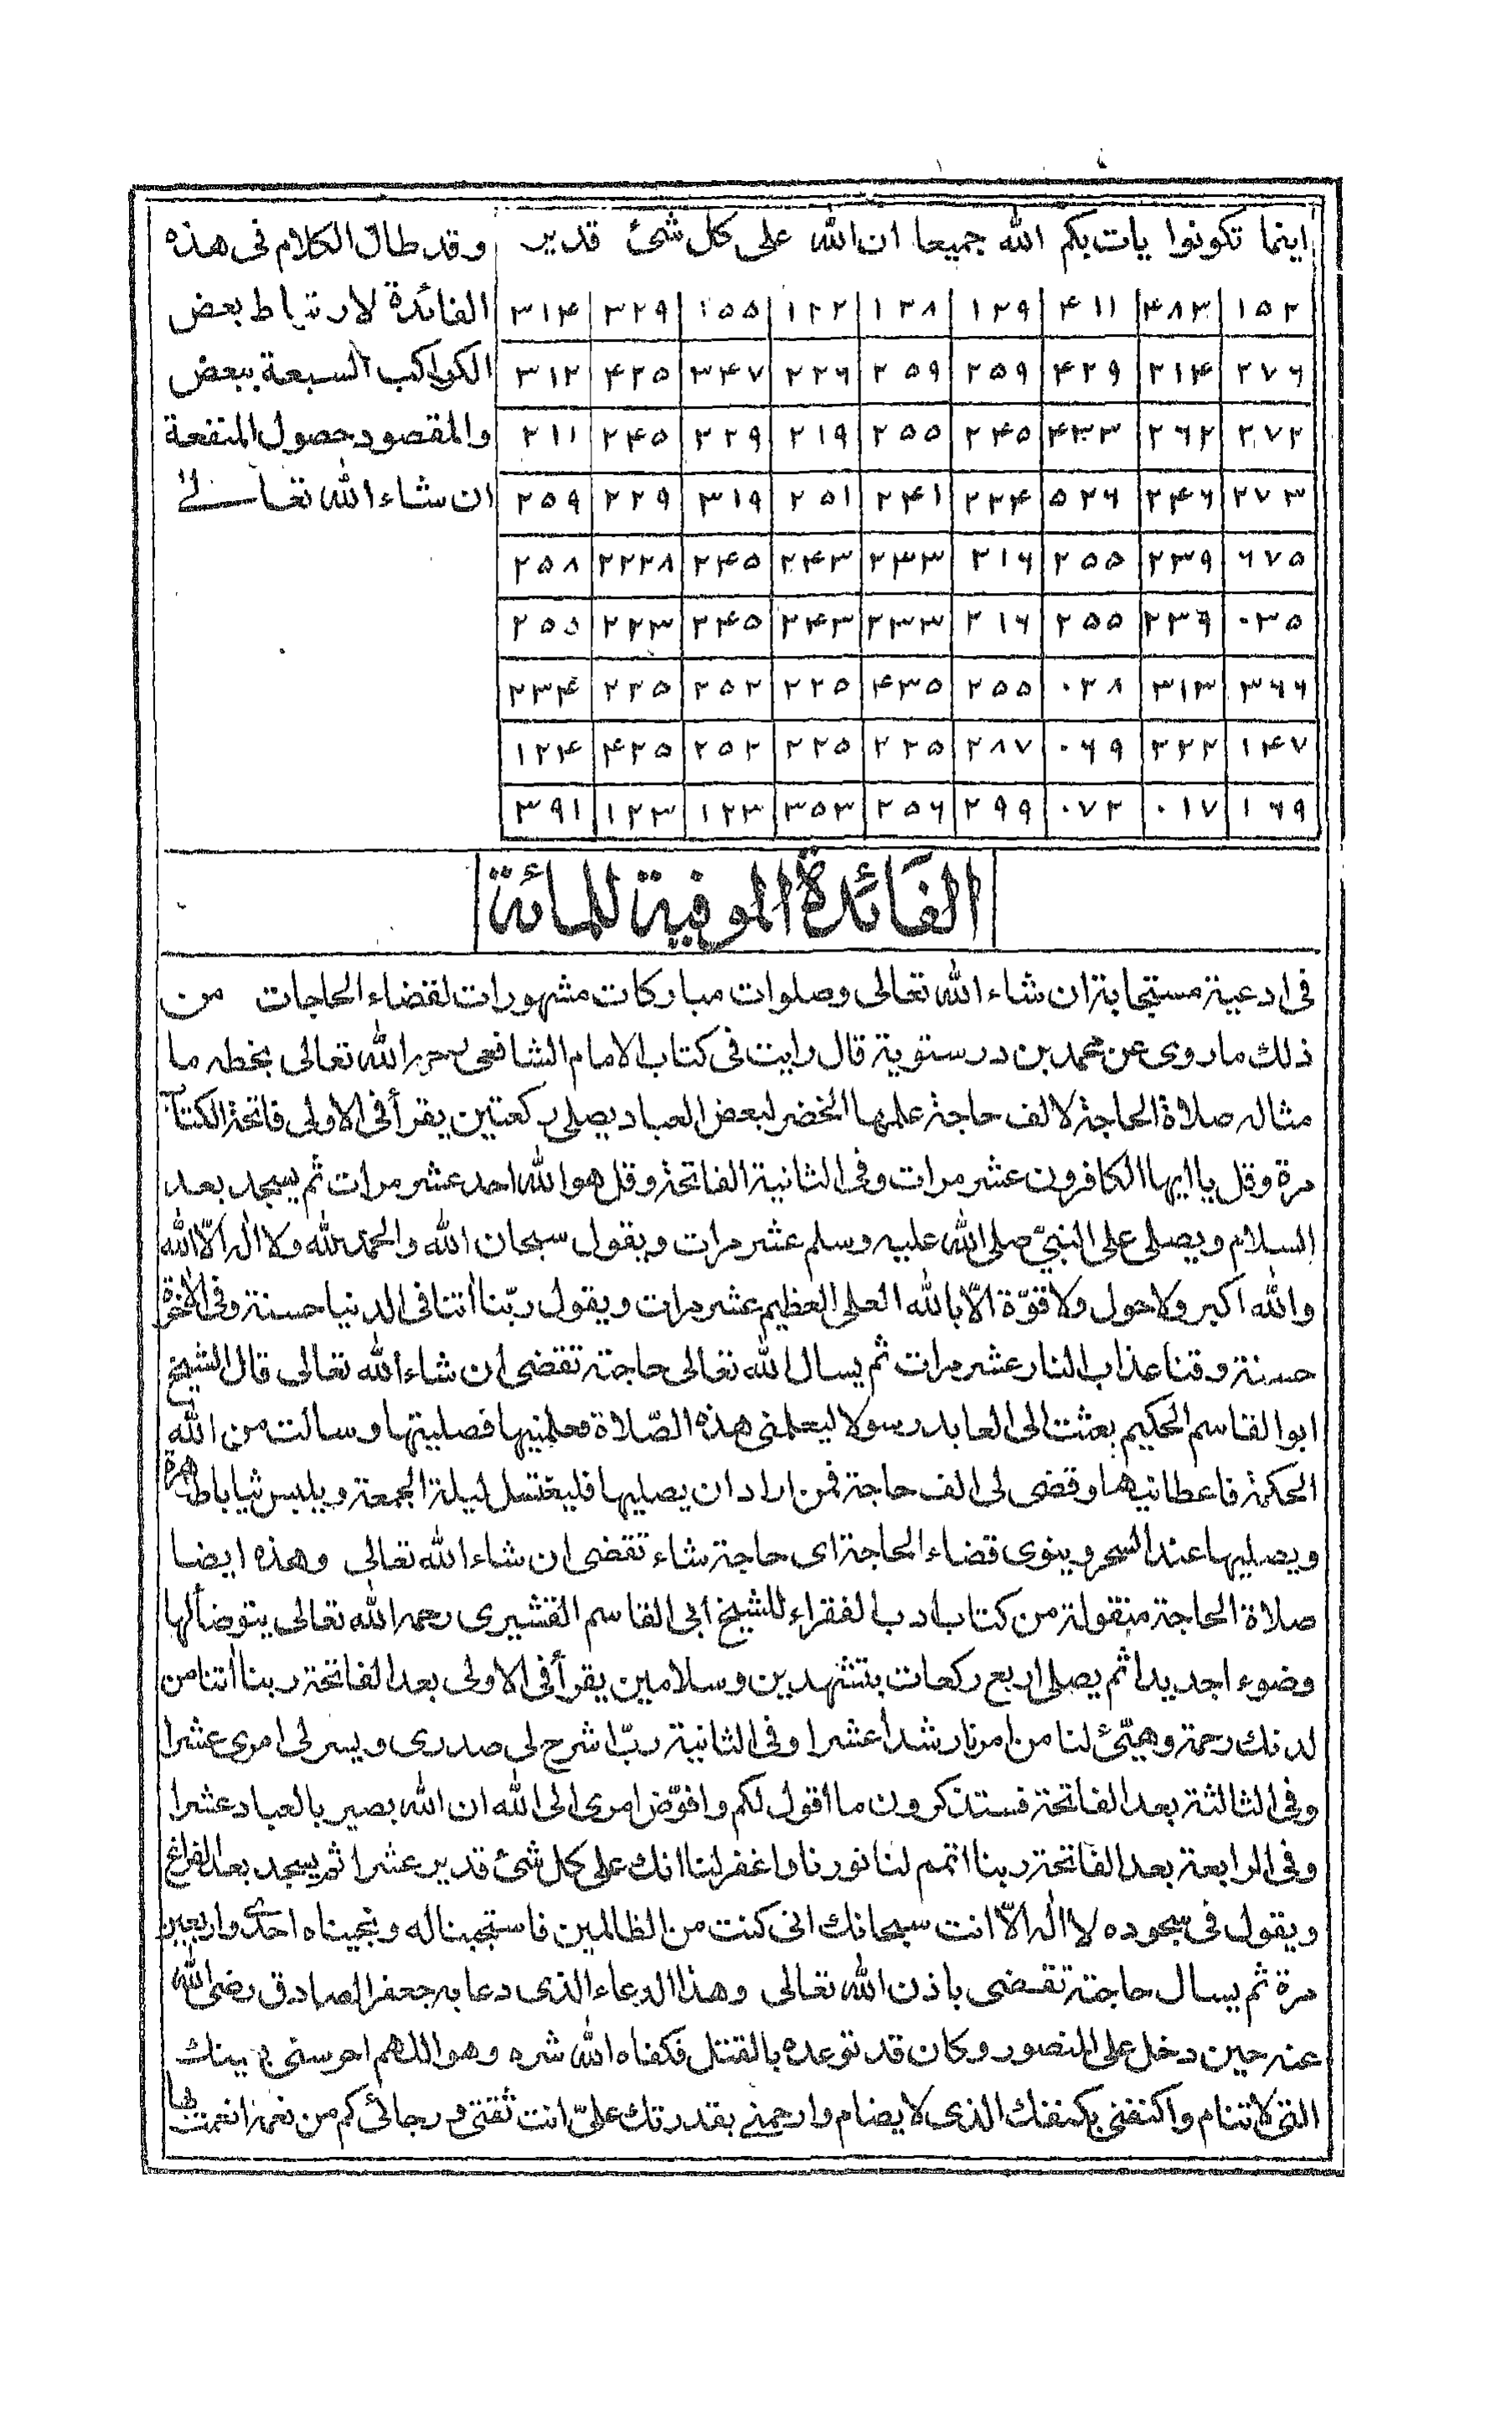 اينما تكونوا يات بكم الله جميعا ان الله على كل شئ قدير
١٥٢ ٣٨٣ ٤١١ ١٢٩ ١٣٨ ١٢٢ ١٥٥ ٣٢٩ ٣١٤
٢٧٦ ٢١٤ ٤٢٩ ٢٥٩ ٢٥٩ ٢٢٦ ٣٤٧ ٤٢٥ ٣١٢
٢٧٢ ٢٦٢ ٤٣٣ ٢٤٥ ٢٥٥ ٢١٩ ٢٢٩ ٢٤٥ ٢١١
٢٧٣ ٢٤٦ ٥٢٦ ٢٣٤ ٢٤١ ٢٥١ ٣١٩ ٢٢٩ ٢٥٩
٦٧٥ ٢٣٩ ٢٥٥ ٢١٦ ٢٣٣ ٢٤٣ ٢٤٥ ٢٢٢٨ ٢٥٨
٠٣٥ ٢٣٩ ٢٥٥ ٢١٦ ٢٣٣ ٢٤٣ ٢٤٥ ٢٢٣
٣٦٦ ٣١٣ ٠٢٨ ٢٥٥ ٤٣٥ ٢٢٥ ٢٥٢ ٢٢٥ ٢٣٤
١٤٧ ٢٢٢ ٠٦٩ ٢٨٧ ٢٢٥ ٢٢٥ ٢٥٢ ٤٢٥ ١٢٤
١٦٩ ٠١٧ ٠٧٢ ٢٩٩ ٢٥٦ ٣٥٣ ١٢٣ ١٢٣ ٣٩١
وقد طال الكلام فى هذه
الفائدة لارتباط بعض
الكواكب السبعة ببعض
والمقصود حصول المنفعة
ان شاء الله تعالى
الفائدة الموفية للمائة
فى ادعية مستجابة ان شاء الله تعالى وصلوات مباركات مشهورات لقضاء الحاجات من
ذلك ما روى عن محمد بن درستوية قال رايت فى كتاب الامام الشافعى رحمه الله تعالى بخطه ما
مثاله صلاة الحاجة لالف حاجة علمها الخضر لبعض العباد يصلى ركعتين يقرأ فى الاولى فاتحة الكتاب
مرة وقل يا ايها الكافرون عشر مرات وفى الثانية الفاتحة وقل هو الله احد عشر مرات ثم يسجد بعد
السلام ويصلى على النبئ صلى الله عليه وسلم عشر مرات ويقول سبحان الله والحمد لله ولا اله الّا الله
والله اكبر ولا حول ولا قوّة الّا بالله العلى العظيم عشر مرات ويقول ربّنا اٰتنا فى الدنيا حسنة وفى الاٰخرة
حسنة وقنا عذاب النار عشر مرات ثم يسال الله تعالى حاجة تقضى ان شاء الله تعالى قال الشيخ
ابو القاسم الحكيم بعثت الى العابد رسولا ليعلمنى هذه الصّلاة فعلمنيها فصليتها وسالت من الله
الحكمة فاعطانيها وقضى لى الف حاجة فمن اراد ان يصليها فليغتسل ليلة الجمعة ويلبس ثيابا طاهرة
ويصليها عند السحر وينوى قضاء الحاجة اى حاجة شاء تقضى ان شاء الله تعالى وهذه ايضا
صلاة الحاجة منقولة من كتاب ادب الفقراء للشيخ ابى القاسم القشيرى رحمه الله تعالى يتوضأ لها
وضوء اجديدا ثم يصلى اربع ركعات بتشهدين وسلامين يقرأ فى الاولى بعد الفاتحة ربنا اٰتنا من
لدنك رحمة وهيّئ لنا من امرنا رشدا عشرا وفى الثانية ربّ اشرح لى صدرى ويسر لى امرى عشرا
وفى الثالثة بعد الفاتحة فستذكرون ما اقول لكم وافوّض امرى الى الله ان الله بصير بالعباد عشرا
وفى الرابعة بعد الفاتحة ربنا اتمم لنا نورنا واغفر لنا انك على كل شئ قدير عشرا ثم يسجد بعد الفراغ
ويقول فى سجوده لا اله الّا انت سبحانك انى كنت من الظالمين فاستجبنا له ونجيناه احدى واربعين
مرة ثم يسال حاجته تقضى باذن الله تعالى وهذا الدعاء الذى دعا به جعفر الصادق رضى الله
عنه حين دخل على المنصور وكان قد توعده بالقتل فكفاه الله شره وهو اللهم احرسنى بعينك
التى لا تنام واكنفنى بكنفك الذى لا يضام وارحمنى بقدرتك علىّ انت ثقتى ورجائى كم من نعمة انعمت بها